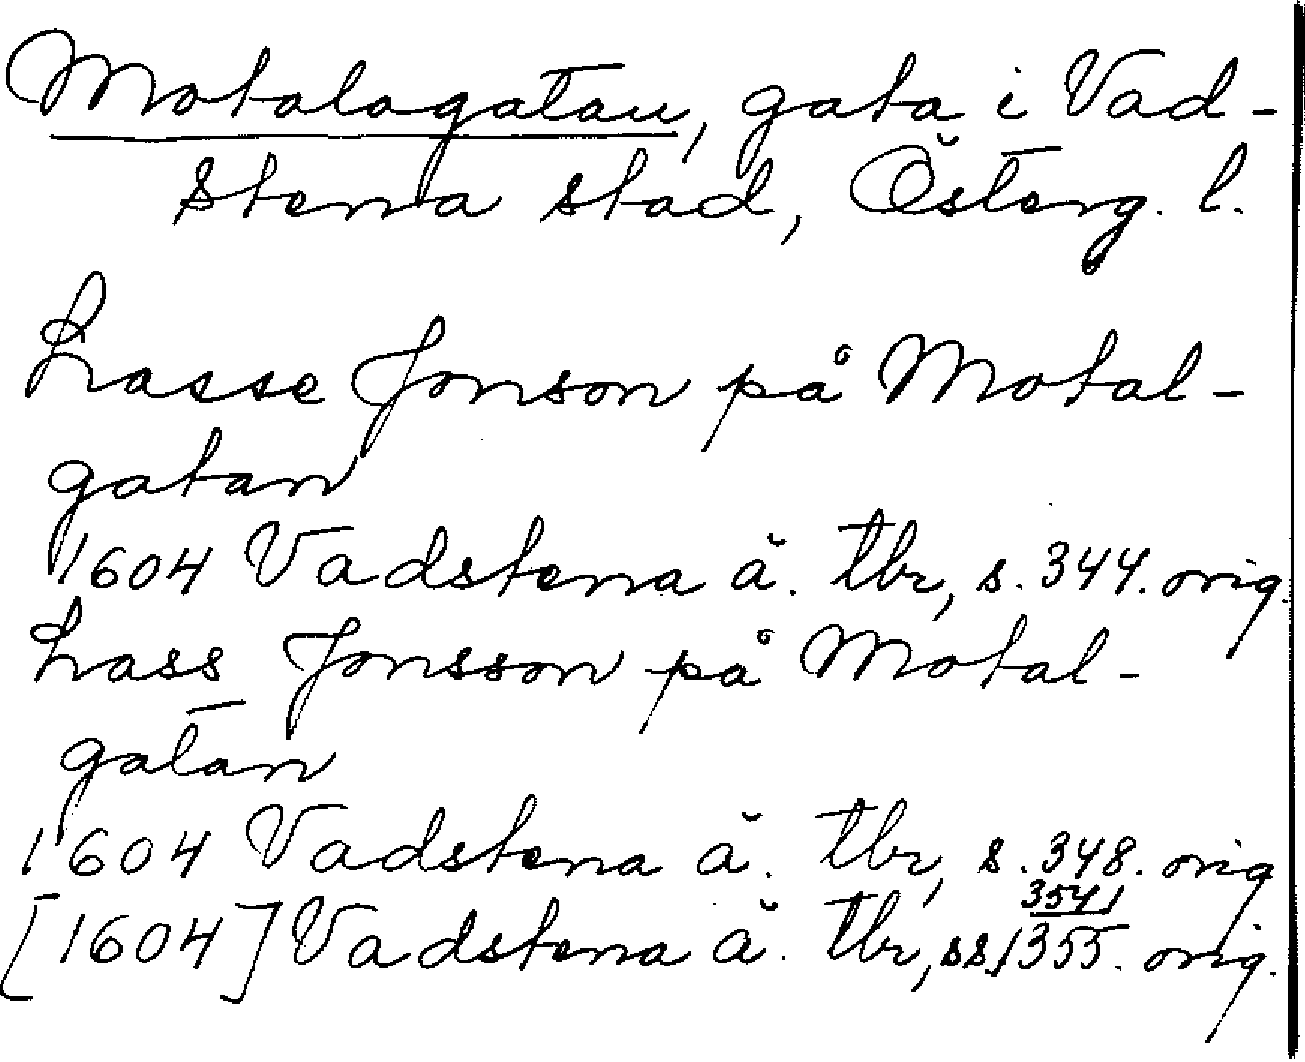 Motalagatan, gata i Vad-
stena stad, Österg. l.
Lasse Jonson på Motal-
gatan
1604 Vadstena ä. tbr, s. 344. orig.
Lass Jonsson på Motal-
gatan
1604 Vadstena ä. tbr, s. 348. orig
[1604] Vadstena ä. tbr, ss. 354, 355. orig.